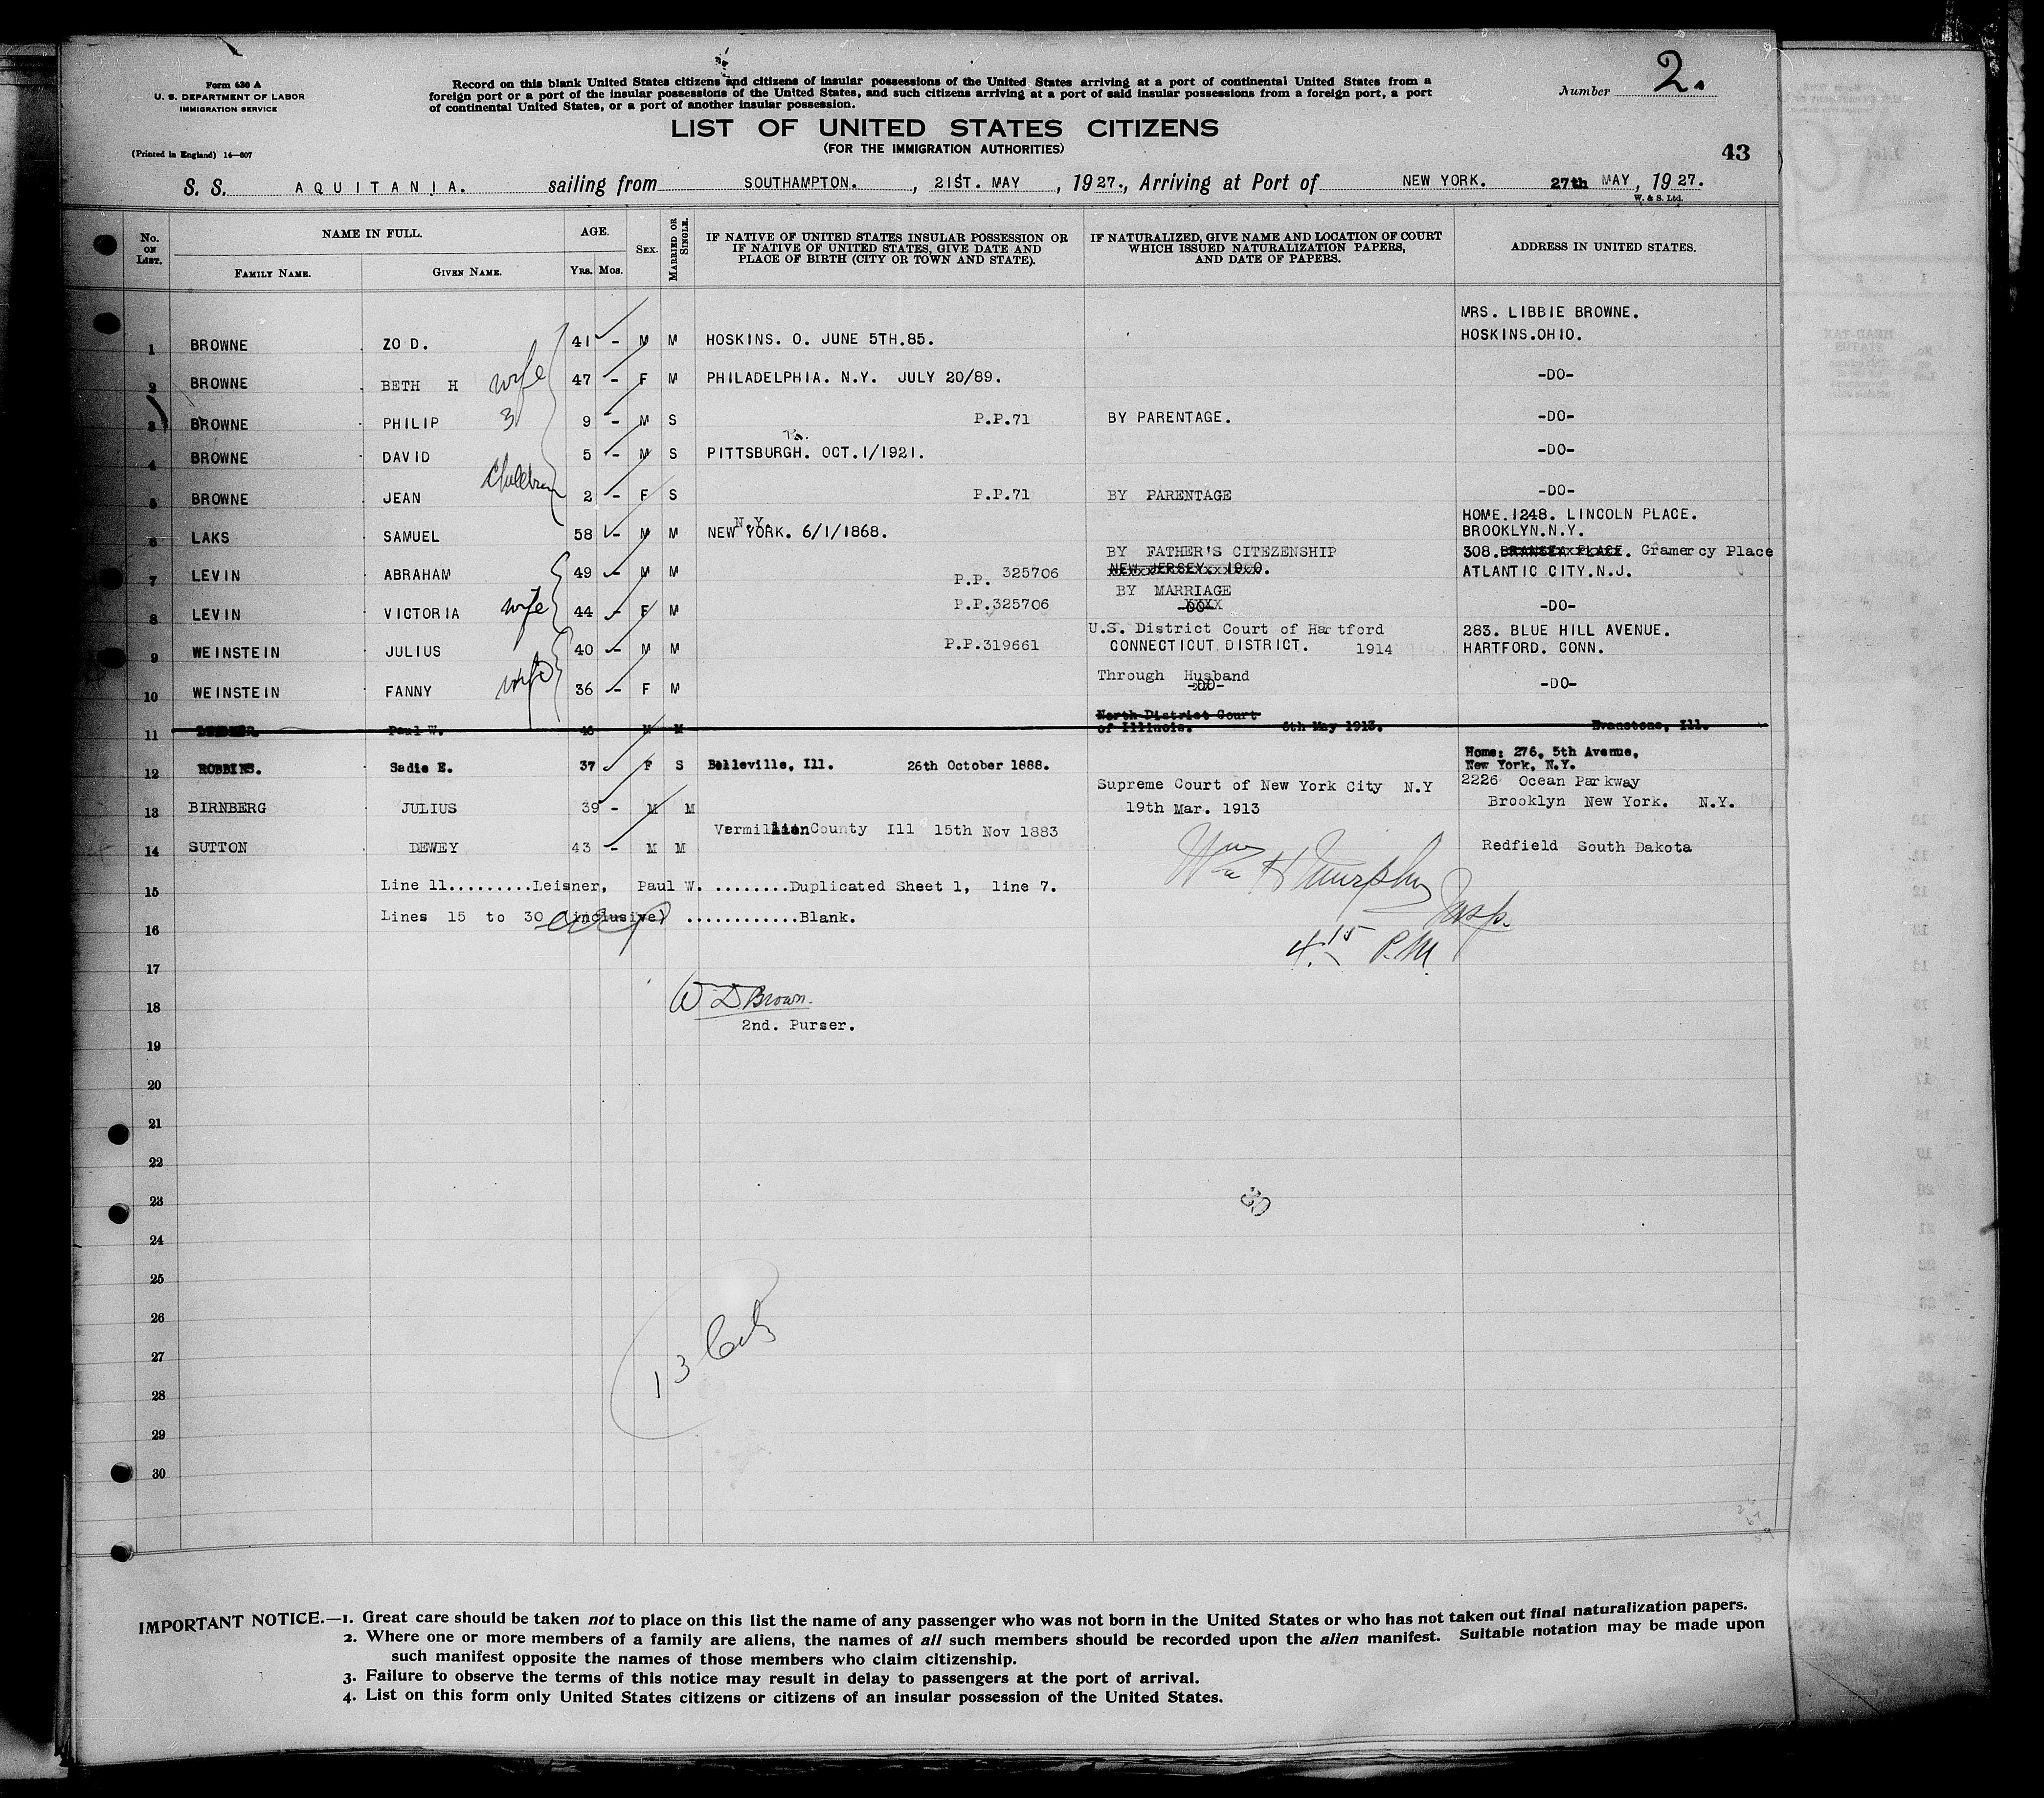 Form 630 A
U. S. DEPARTMENT OF LABOR
IMMIGRATION SERVICE
(Printed in England) 14—607
Record on this blank United States citizens and citizens of insular possessions of the United States arriving at a port of continental United States from a
foreign port or a port of the insular possessions of the United States, and such citizens arriving at a port of said insular possessions from a foreign port, a port
of continental United States, or a port of another insular possession.
Number 2.
LIST OF UNITED STATES CITIZENS
(FOR THE IMMIGRATION AUTHORITIES)
43
S. S. AQUITANIA. sailing from SOUTHAMPTON. , 21ST. MAY , 1927., Arriving at Port of NEW YORK. 27th MAY, 1927.
W. & S. Ltd.
No. ON LIST. NAME IN FULL. FAMILY NAME. GIVEN NAME. AGE. YRS. MOS. SEX. MARRIED OR SINGLE. IF NATIVE OF UNITED STATES INSULAR POSSESSION OR IF NATIVE OF UNITED STATES, GIVE DATE AND PLACE OF BIRTH (CITY OR TOWN AND STATE). IF NATURALIZED, GIVE NAME AND LOCATION OF COURT WHICH ISSUED NATURALIZATION PAPERS, AND DATE OF PAPERS. ADDRESS IN UNITED STATES.
MRS. LIBBIE BROWNE.
1 BROWNE ZO D. 41 - M M HOSKINS. O. JUNE 5TH.85. HOSKINS.OHIO.
2 BROWNE BETH H wife 47 - F M PHILADELPHIA. N.Y. JULY 20/89. -DO-
3 BROWNE PHILIP 3 9 - M S P.P.71 BY PARENTAGE. -DO-
Pa.
4 BROWNE DAVID 5 - M S PITTSBURGH. OCT.1/1921. -DO-
children
5 BROWNE JEAN 2 - F S P.P.71 BY PARENTAGE -DO-
HOME.1248. LINCOLN PLACE.
N.Y.
6 LAKS SAMUEL 58 - M M NEW YORK. 6/1/1868. BROOKLYN.N.Y.
BY FATHER'S CITEZENSHIP 308. PLACE. Gramercy Place
7 LEVIN ABRAHAM 49 - M M P.P. 325706 NEW JERSEY. 1900. ATLANTIC CITY.N.J.
BY MARRIAGE
8 LEVIN VICTORIA wife 44 - F M P.P.325706 -DO- -DO-
U.S. District Court of Hartford 283. BLUE HILL AVENUE.
9 WEINSTEIN JULIUS 40 - M M P.P.319661 CONNECTICUT DISTRICT. 1914 HARTFORD. CONN.
Through Husband
10 WEINSTEIN FANNY wife 36 - F M -DO- -DO-
North District Court
11 Paul W. M M of Illinois. 6th May 1913. Evanstone, Ill.
Home: 276, 5th Avenue,
12 ROBBINS. Sadie E. 37 F S Belleville, Ill. 26th October 1888. New York, N.Y.
Supreme Court of New York City N.Y 2226 Ocean Parkway
13 BIRNBERG JULIUS 39 - M M 19th Mar. 1913 Brooklyn New York. N.Y.
Vermillian County Ill 15th Nov 1883
14 SUTTON DEWEY 43 - M M Redfield South Dakota
Wm H Murphy
15 Line 11.........Leisner, Paul W. ........Duplicated Sheet 1, line 7.
Insp.
16 Lines 15 to 30 (inclusive) ............Blank.
4.15 P.M.
17
W D Brown.
18
2nd. Purser.
19
20
21
22
23
30
24
25
26
27
13
28
29
30
IMPORTANT NOTICE.—1. Great care should be taken not to place on this list the name of any passenger who was not born in the United States or who has not taken out final naturalization papers.
2. Where one or more members of a family are aliens, the names of all such members should be recorded upon the alien manifest. Suitable notation may be made upon
such manifest opposite the names of those members who claim citizenship.
3. Failure to observe the terms of this notice may result in delay to passengers at the port of arrival.
4. List on this form only United States citizens or citizens of an insular possession of the United States.